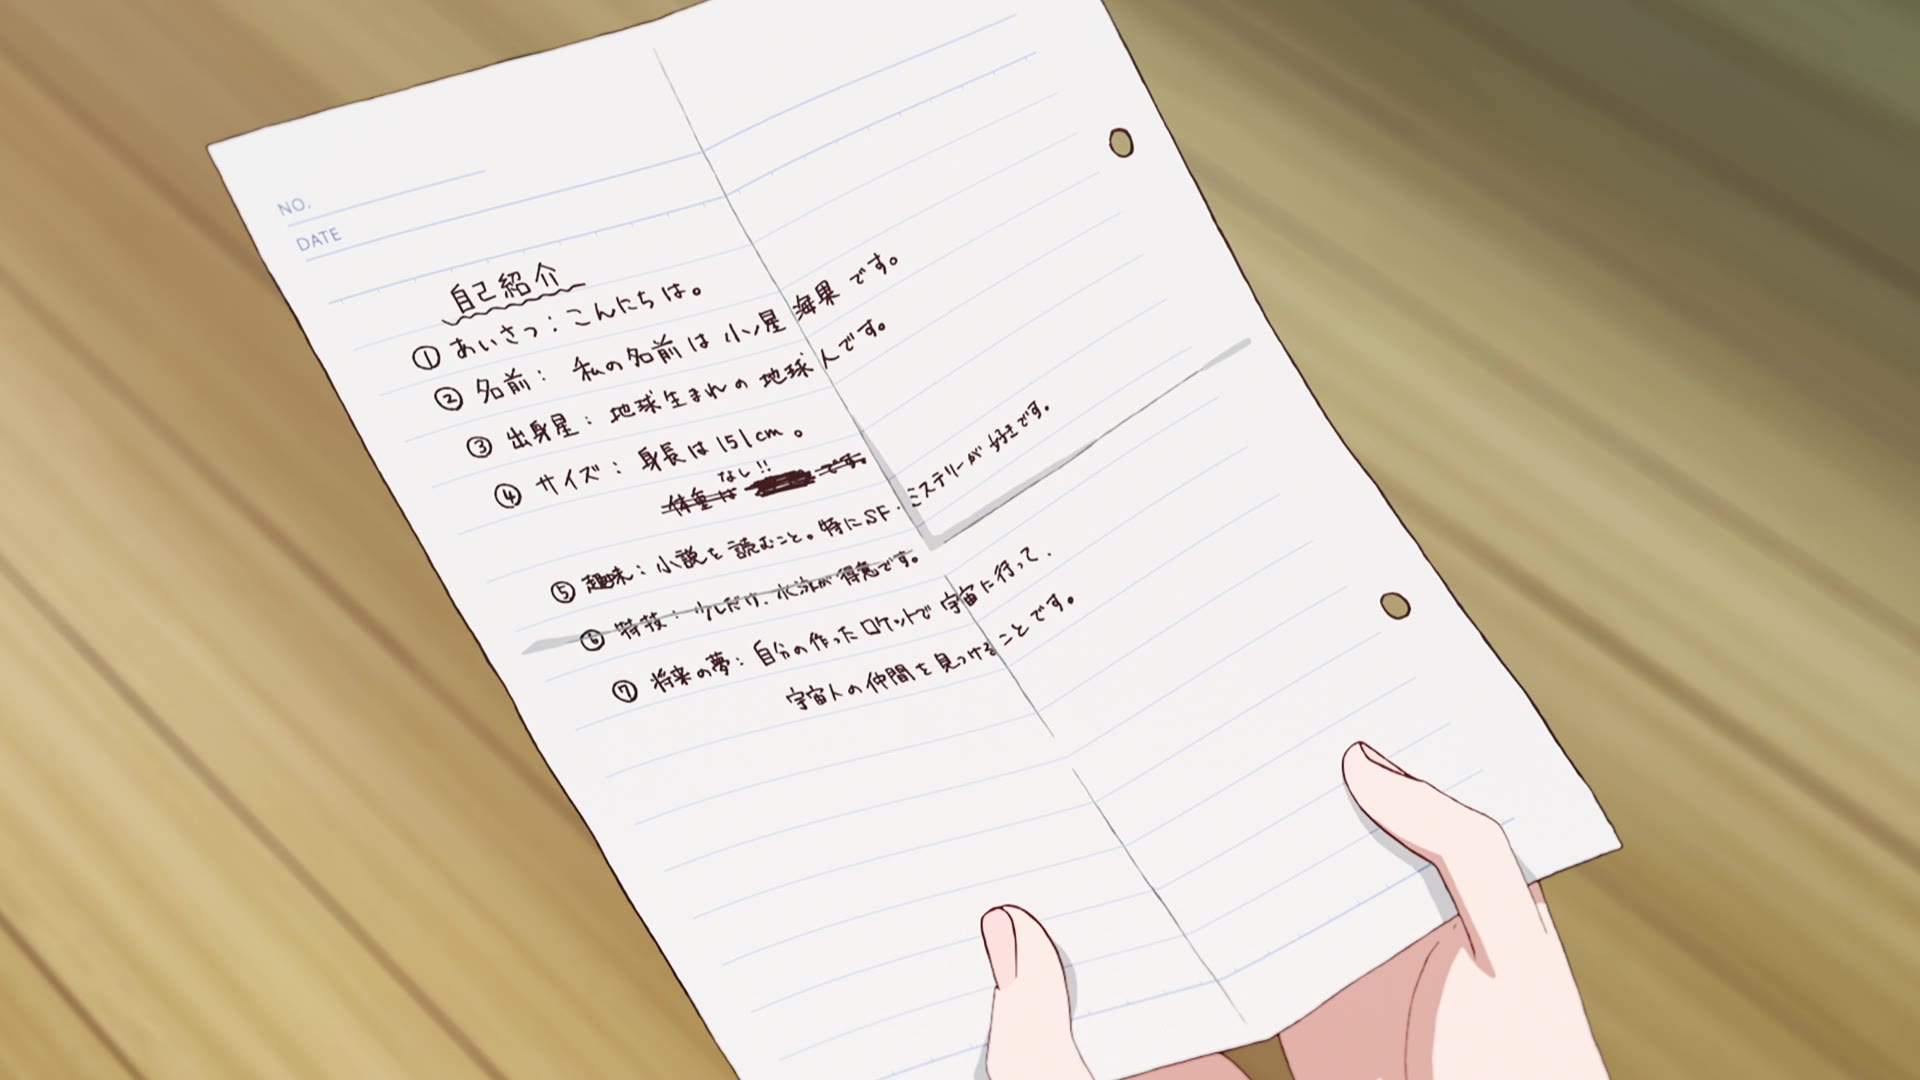 NO.
DATE
自己紹介
① あいさつ：こんにちは。
② 名前： 私の名前は小ノ星海果です。
③ 出身星：地球生まれの地球人です。
④ サイズ：身長は151cm。
なし!!
体重は です。
⑤ 趣味：小説を読むこと。特にSF・ミステリーが好きです。
⑥ 特技：少しだけ、水泳が得意です。
⑦ 将来の夢：自分の作ったロケットで宇宙に行って、
宇宙人の仲間を見つけることです。